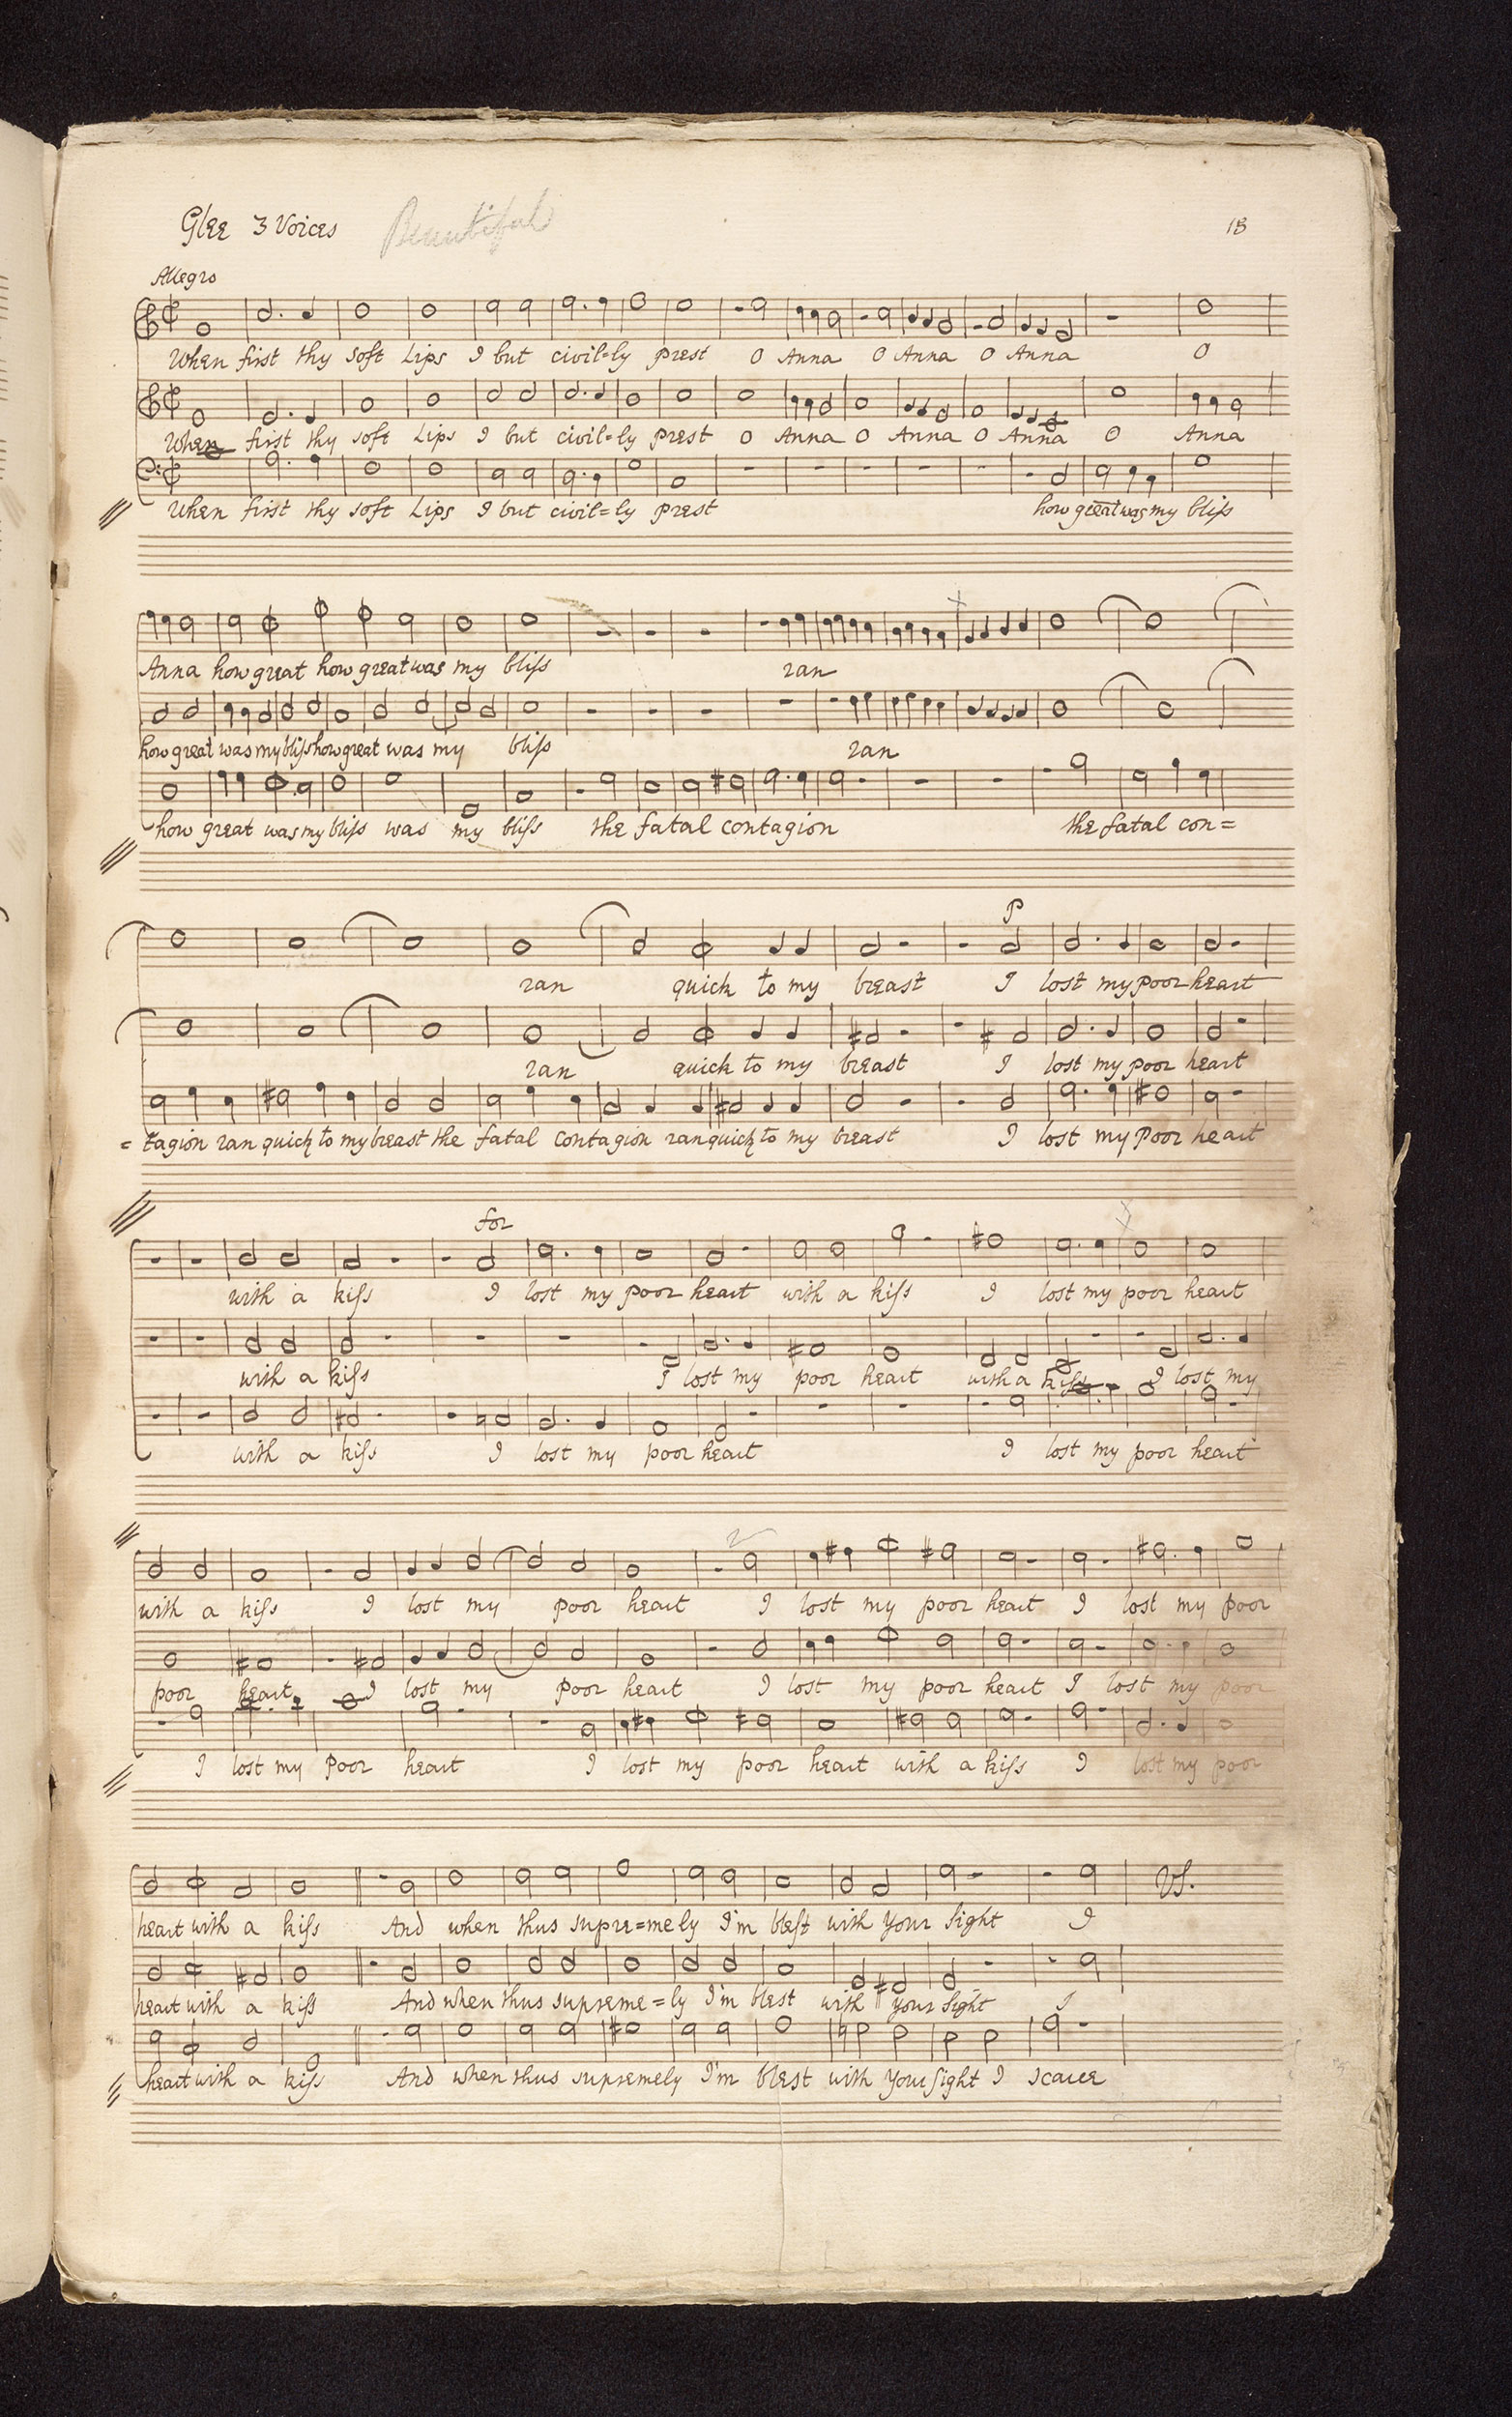 Glee 3 Voices Beautiful 18
Allegro
When first thy soft Lips I but civil=ly prest O Anna O Anna O Anna O
When first thy soft Lips I but civil=ly prest O Anna O Anna O Anna O Anna
When first thy soft Lips I but civil=ly prest how great was my bliſs
Anna how great how great was my bliſs ran
how great was my bliſs how great was my bliſs ran
how great was my bliſs was my bliſs the fatal contagion the fatal con=
P
ran quick to my breast I lost my poor heart
ran quick to my breast I lost my poor heart
=tagion ran quick to my breast the fatal contagion ran quick to my breast I lost my poor heart
for
with a kiſs I lost my poor heart with a kiſs I lost my poor heart
with a kiſs I lost my poor heart with a kiſs I lost my
with a kiſs I lost my poor heart I lost my poor heart
with a kiſs I lost my poor heart I lost my poor heart I lost my poor
poor heart I lost my poor heart I lost my poor heart I lost my poor
I lost my poor heart I lost my poor heart with a kiſs I lost my poor
VS.
heart with a kiſs And when thus supre=mely I'm blest with your Sight I
heart with a kiſs And when thus supreme=ly I'm blest with your Sight I
heart with a kiſs And when thus supremely I'm blest with your Sight I scarce